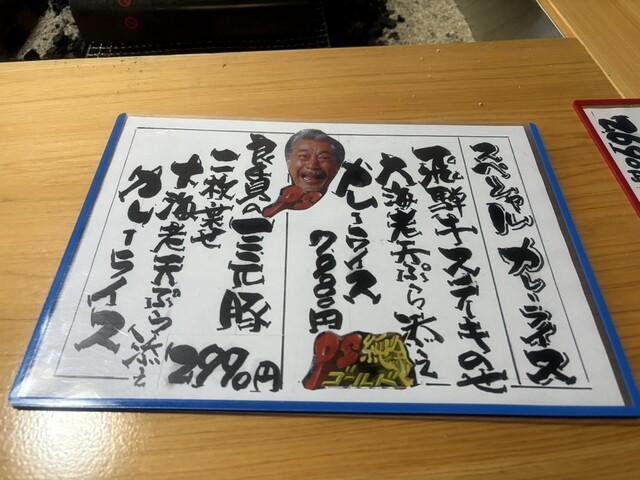 スペシャル カレーライス
飛騨牛ステーキのせ
大海老天ぷら添え
カレーライス
7000円
良質の三元豚
二枚乗せ
大海老天ぷら添え
カレーライス
2990円
ゴールド